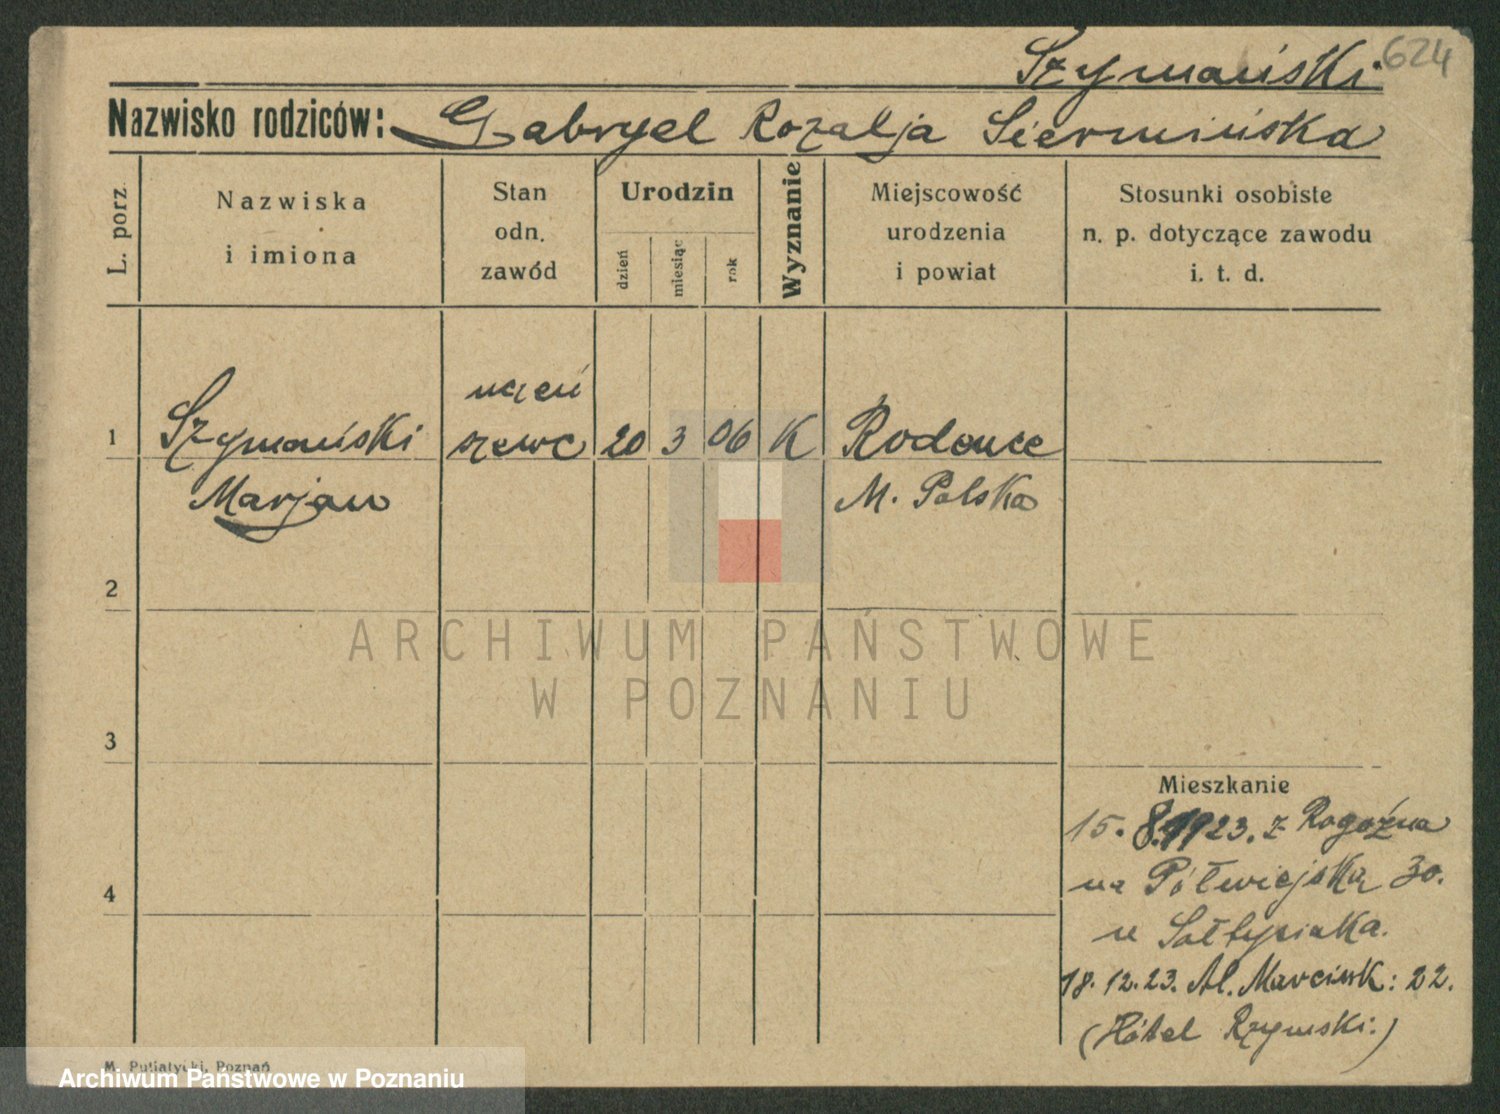 Szymański 624
Nazwisko rodziców: Gabryel Rozalja Siermińska
L. porz
Nazwiska
i imiona
Stan
odn.
zawód
Urodzin
dzień
miesiąc
rok
Wyznanie
Miejscowość
urodzenia
i powiat
Stosunki osobiste
n. p. dotyczące zawodu
i. t. d.
uczeń
1 Szymański szewc 20 3 06 K
Marjan M. Polska
2
ARCHIWUM PAŃSTWOWE
W POZNANIU
3
Mieszkanie
15. 8. 1923. z Rogoźna
na Półwiejską 30.
4
u Sołtysiaka.
18. 12. 23. Al. Marcink: 22.
(Hótel Rzymski:)
M. Putiatycki, Poznań
Archiwum Państwowe w Poznaniu